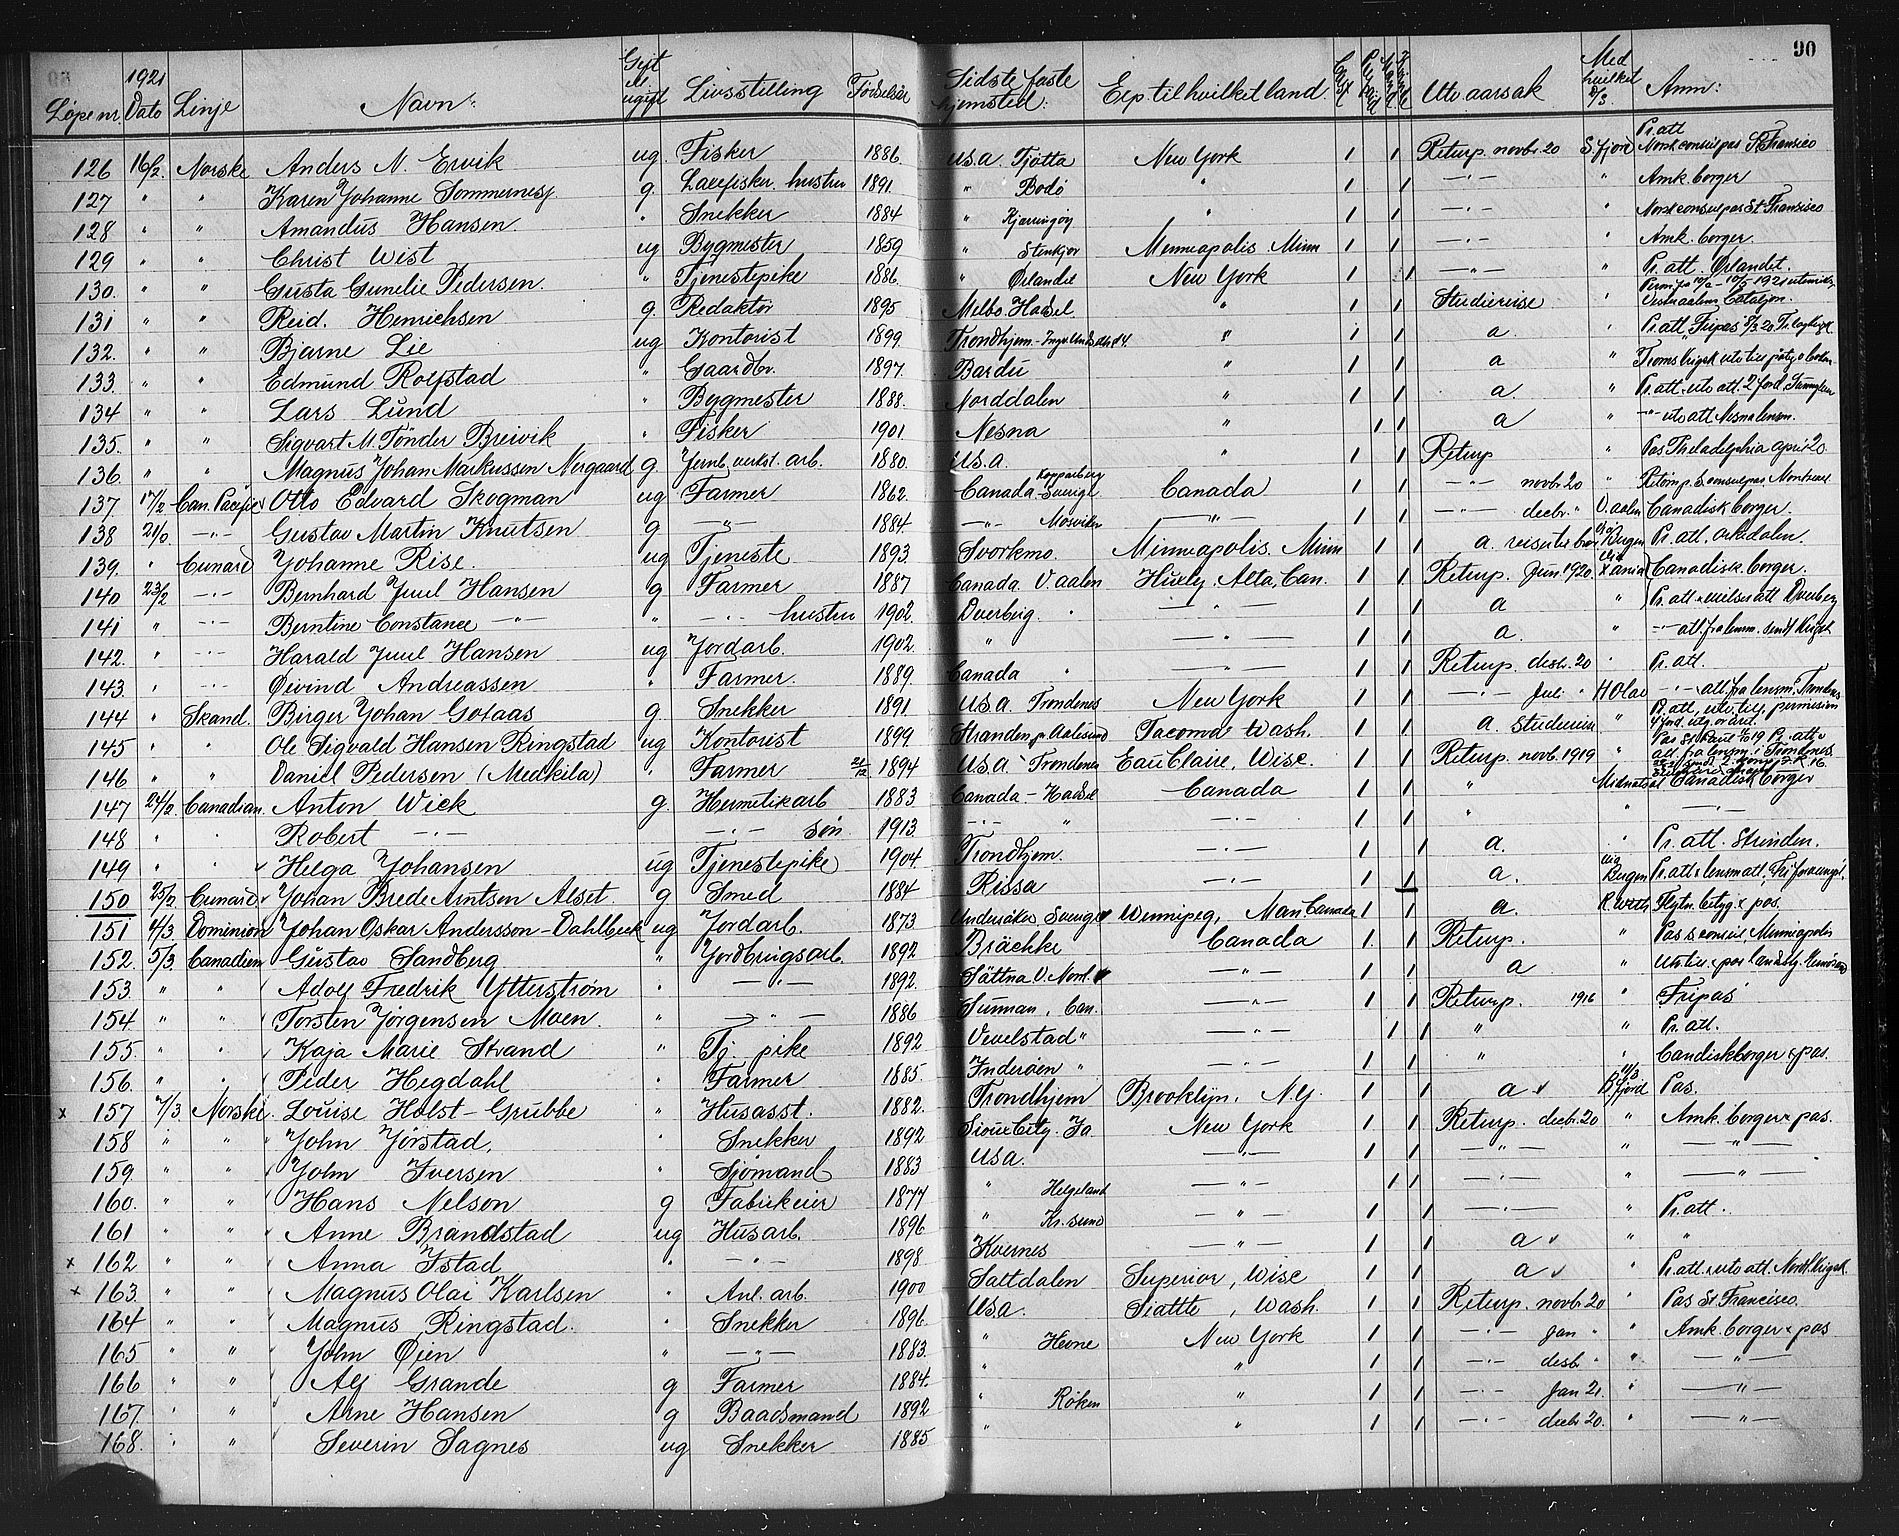 90
Løpe nr. 1921 Dato Linje Navn: Gift el. ugift Livsstilling Fødselsår Sidste faste hjemsted: Exp. til hvilket land. Utv. aarsak Med hvilket D/S. Anm:
126 16/2 Norske Anders N. Ervik ug. Fisker 1886 U.S.A. Tjøtta New York 1 1 Returp. novbr. 20 S.fjord Pr. att Norsk consulpas St Fransico
127 " " Karen Johanne Sommernesj g. hustru 1891 " Bodø " 1 1 -"- " Amk. borger
128 " " Amandus Hansen " Snekker 1884 " Kjærringøy " 1 1 -"- " Norsk consulpas St Fransisco
129 " " Christ Wist ug Bygmester 1859 " Stenkjær Minneapolis Minn 1 1 -"- " Amk. borger.
130. " " Gusta Gunelie Pedersen. " Tjenestepike 1886. " Ørlandet New York 1 1 -"- " Pr. att. Ørlandet.
131 " " Reid. Henrichsen g. Redaktør 1895 Melbo. Hadsel " 1 1 Studiereise "
132. " " Bjarne Lie ug Kontorist 1899. Trondhjem " 1 1 a "
133. " " Edmund Rolfstad " Gaardbr. 1897. Bardu " 1 1 a "
134 " " Lars Lund " Bygmester 1888. Norddalen " 1 1 a. "
135. " " Sigvart M. Tønder Breivik " Fisker 1901. Nesna " 1 1 a " -"- utv att Nesna lensm.
136. " " Magnus Johan Markussen Norgaard g. Jernb. verkst. arb. 1880. U.S.A. " 1 1 Returp " Pas Philadelphia april 20
137. 17/2 Can. Pacific Otto Edvard Skogman ug Farmer 1862. Canada - Sverige Kopparberg Canada 1 1 -"- novbr 20 "
138 21/2 -"- Gustav Martin Knutsen g -"- 1884. -"- Mosviken -"- 1 1 -"- decbr. " V.aalen Canadisk borger.
139. " Cunard Johanne Rise. ug Tjeneste 1893. Svorkmo. Minneapolis. Minn 1 1 a. Pr. att. orkedalen.
140 23/2 -"- Bernhard Juul Hansen g Farmer 1887 Canada. Huxly, Alta, Can. 1 1 Returp. Jun. 1920. Canadisk. borger.
141 " -"- Berntine Constance -"- " -"- hustru 1902. Dverberg. " -"- 1 1 a "
142. " -"- Harald Juul Hansen ug Jordarb. 1902. " -"- 1 1 a. "
143. " -"- Øivind Andreassen " Farmer. 1889. Canada " -"- 1 1 Returp. desb. 20 " Pr. att.
144 " Skand. Birger Johan Gotaas g. Snekker 1891 U.S.A. Trondenes New York 1 1 -"- Juli " H Olav
145 " " Ole Sigvald Hansen Ringstad ug Kontorist 1899. Stranden pr Aalesund Tacoma Wash. 1 1 a. "
146 " " Daniel Pedersen (Medkila) " Farmer 24/12 1894 U.S.A. Trondenes Eau Claire, Wisc. 1 1 Returp. novb. 1919 "
147 24/2. Canadian Anton Wick g. Hermetikarb 1883 Canada - Hadsel Canada 1 1 " Midnatsol Canadisk borger
148 " " Robert -"- -"- søn. 1913. -"- " -"- 1 1 " " -"-
149 " " Helga Johansen ug Tjenestepike 1904. Trondhjem. -"- 1 1 a. " Pr. att.
150 25/2 Cunard Johan Brede Arntsen Alset g Smed 1884 Rissa -"- 1 1 a.
151 4/3 Dominion Johan Oskar Andersson-Dahlbeck ug Jordarb. 1873 Undersåker Sverige Winnipeg, Man Canada 1 1 a.
152. 5/3. Canadian Gustav Sandberg " Jordbrugsarb. 1892 Bräcke Canada 1 1 Returp. " Pas s. consul, Minniapolis
153. " " Adolf Fredrik Ytterström " -"- 1892. -"- 1 1 a "
154. " " Torsten Jørgensen Moen. " -"- 1886 Sunnan, Can. -"- 1 1 Returp. 1916 " Fripas
155. " " Kaja Marie Strand " Tj. pike 1892 Vevelstad " -"- 1 1 " " Pr. att.
156. " " Peder Hegdahl " Farmer 1885. Inderøen " -"- 1 1 " Candisk borger & pas.
x 157 7/3 Norske. Louise Holst-Grubbe " Husasst. 1882. Trondhjem Brooklyn, N.Y. 1 1 a v B.fjord Pas.
158 " " John Jørstad, " Snekker 1892 Sioux City. Ia New York 1 1 Returp. decbr. 20 " Amk. borger & pas.
159. " " John Iversen " Sjømand 1883 USA. -"- 1 1 -"- " -"-
160. " " Hans Nelson g Fabrikeier 1877 " Helgeland -"- 1 1 -"- " -"-
161 " " Anne Brandstad ug Husarb. 1896. " Kr. sund -"- 1 1 -"- " Pr. att.
x 162 " " Anna Istad " -"- 1898. Kvernes -"- 1 1 a v " "
x 163 " " Magnus Olai Karlsen " Anl. arb. 1900 Saltdalen Superior, Wisc 1 1 a v "
164 " " Magnus Ringstad. " Snekker 1896. USA. Seattle, Wash. 1 1 Returp. novbr 20 " Pas St Francisco.
165 " " John Øien " -"- 1883. " Hevne New York 1 1 -"- Jan " " Amk. borger & pas
166 " " Alf Grande g Farmer 1884. " " 1 1 -"- desb " " -"-
167. " " Arne Hansen g Baadsmand 1892 " Røken " 1 1 -"- Jan 21. " -"-
168. " " Severin Sagnes ug Snekker 1885 " " 1 1 -"- decbr 20. " -"-